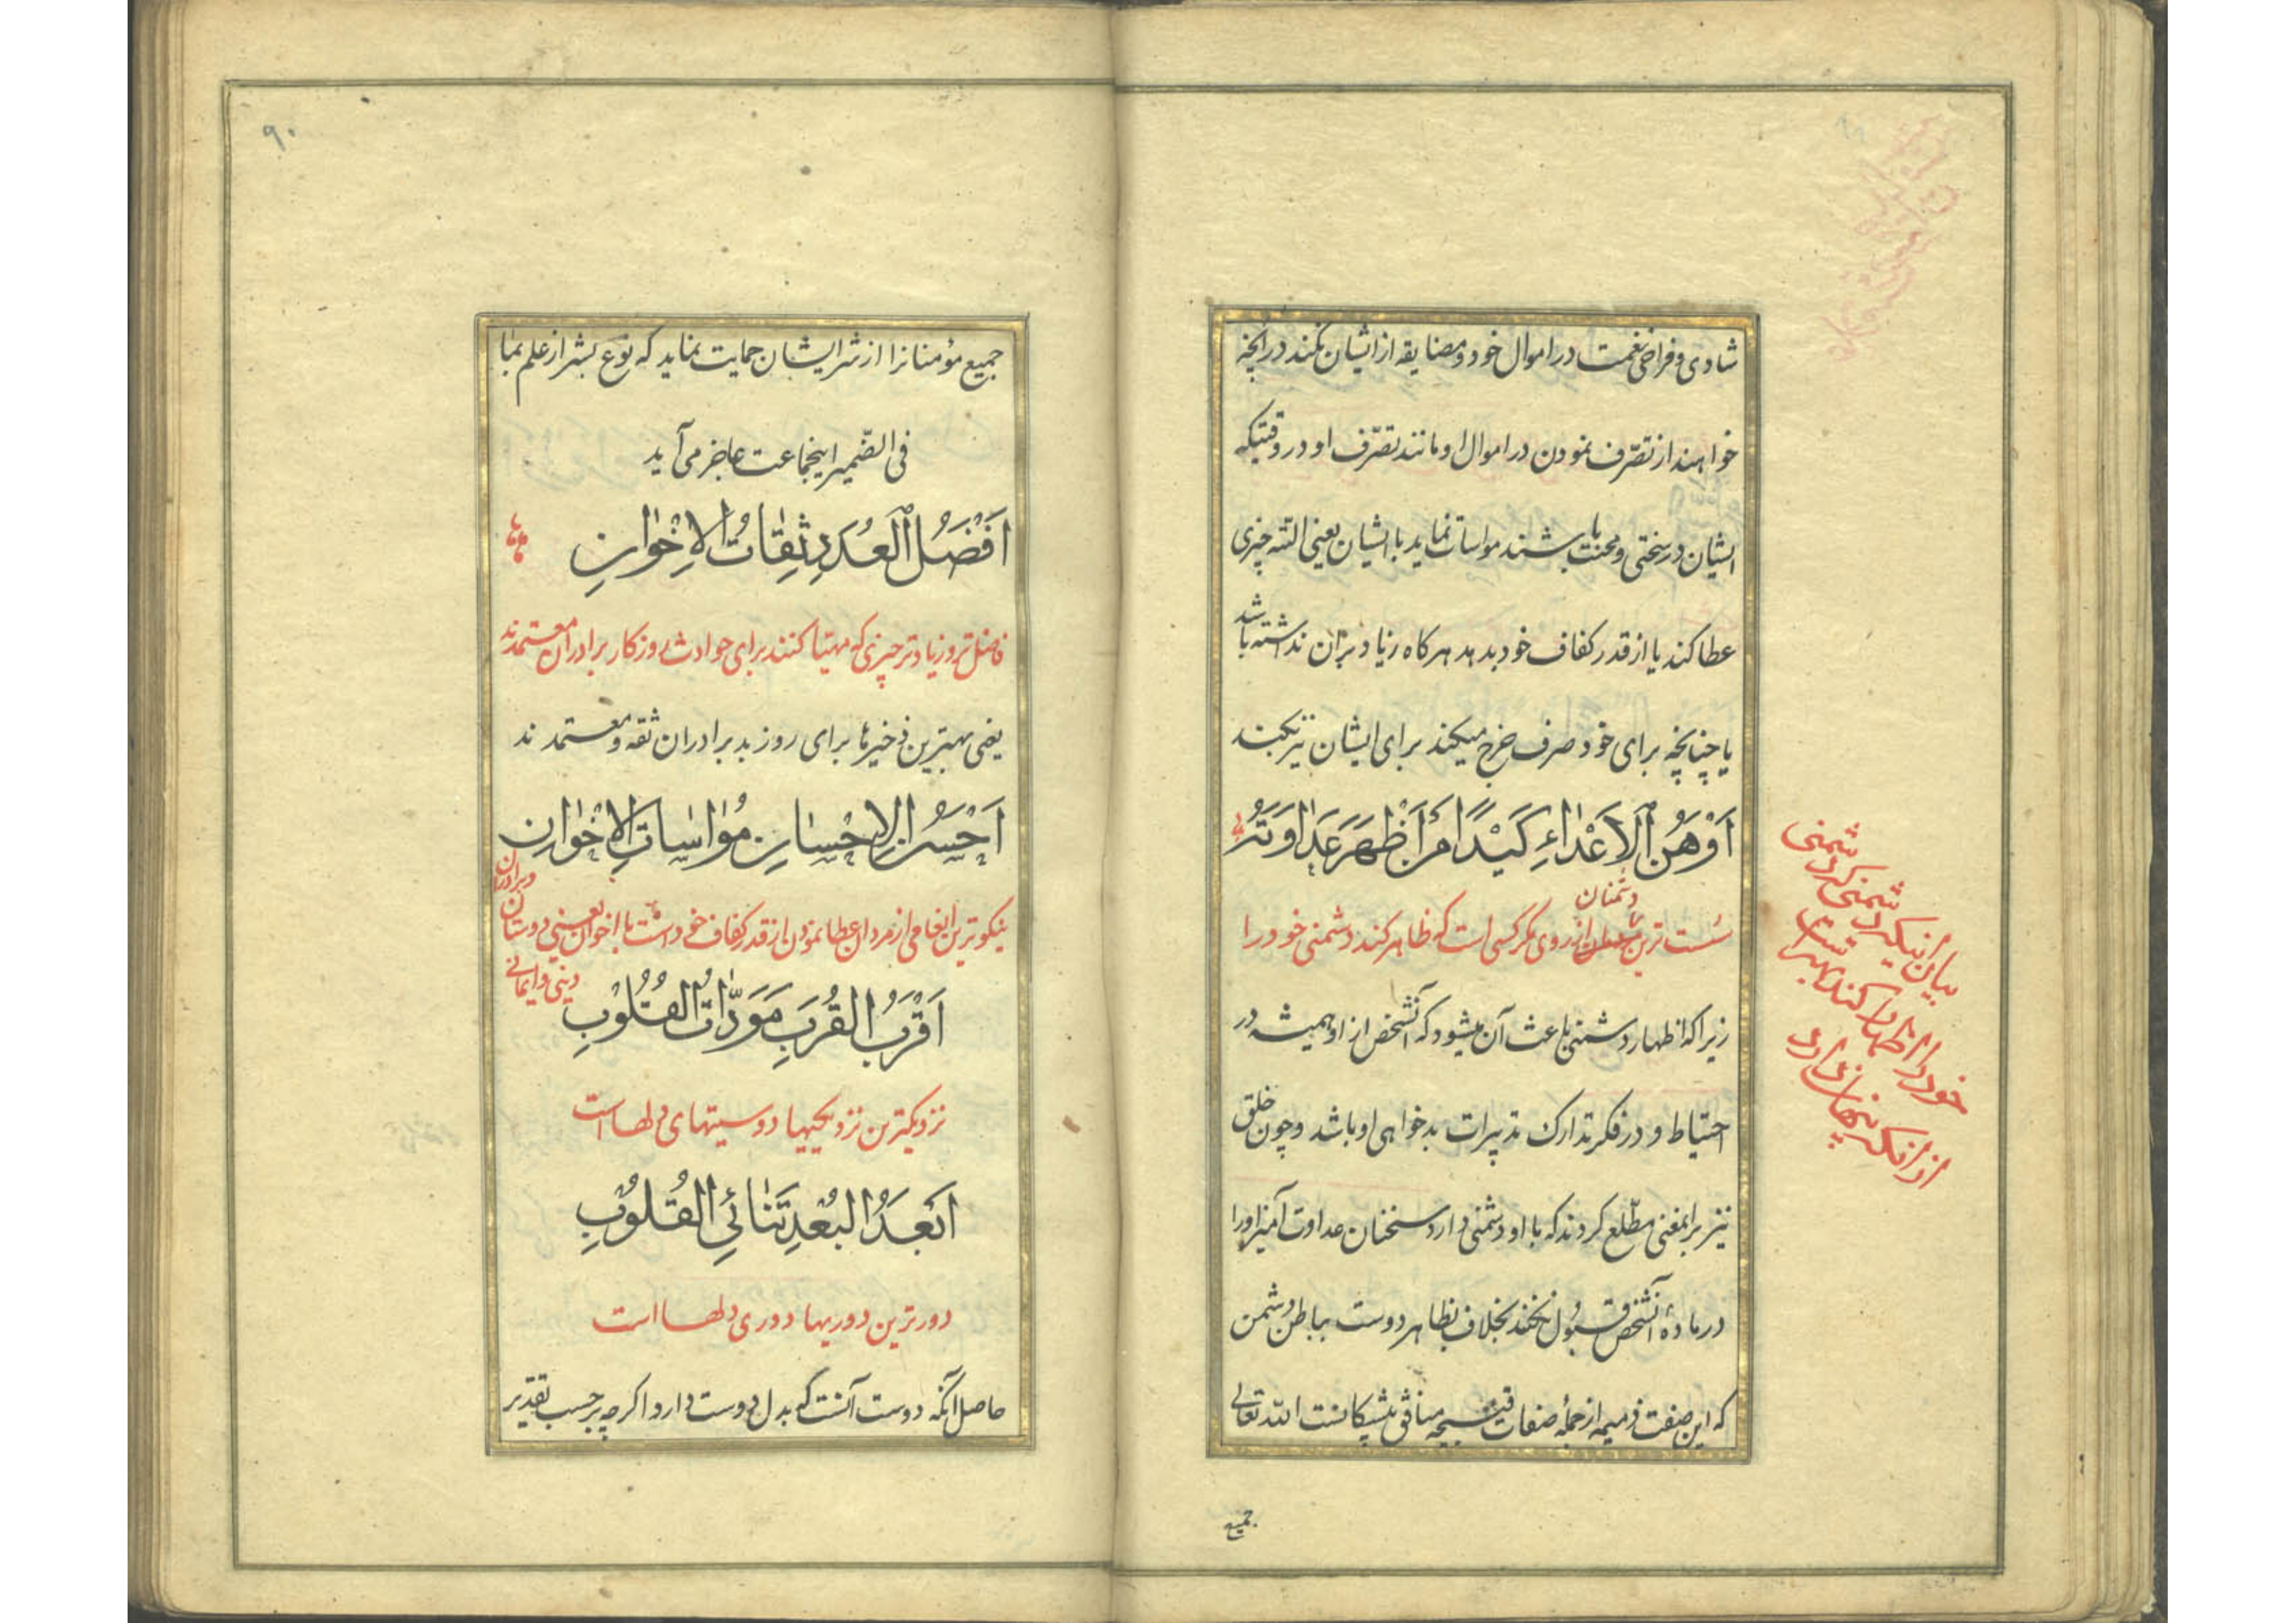 شادی و فراخی نعمت در اموال خود و مضایقه از ایشان نکند در آنچه
خواهند از تصرّف نمودن در اموال او مانند تصرّف او در وقتیکه
ایشان در سختی و محنت باشند مواسات نماید با ایشان یعنی البته چیزی
عطا کند یا از قدر کفاف خود بدهد هرکاه زیاد بران نداشته باشد
یا چنانچه برای خود صرف و خرج میکند برای ایشان نیز بکند
اَوْهَنُ الاَعْدٰاءِ كَيْدًا مَنْ اَظْهَرَ عَدٰاوَتَهُ
دشمنان
سُست ترین از روی مکر کسی است که ظاهر کند دشمنی خود را
زیرا که اظهار دشمنی باعث آن میشود که آنشخص از او همیشه در
احتیاط و در فکر تدارک تدبیرات بدخواهی او باشد و چون خلق
نیز براینمعنی مطّلع کردند که با او دشمنی دارد سخنان عداوت آمیز او را
در مادّه آنشخص قبول نکنند بخلاف بظاهر دوست بباطن دشمن
که این صفت ذمیمه از جملهٔ صفات قبیحه منافق پیشکانست اللّه تعالی
جمیع
دشمنی
بیان انیکه دشمنی که دشمنی
خود را اظهار کند بهتر است
از انکه پنهان دارد
۹۰
جمیع مؤمنانرا از شر ایشان حمایت نماید که نوع بشر از علم بما
فی الضّمیر اینجماعت عاجز می آید
اَفْضَلُ الْعُدَدِ ثِقٰاتُ الاِخْوٰانِ
فاضل تر و زیادتر چیزی که مهیّا کنند برای حوادث روزکار برادران معتمدند
یعنی بهترین ذخیرها برای روز بد برادران ثقه و معتمدند
اَحْسَنُ الاِحْسٰانِ مُوٰاسٰاتُ الاِخْوٰانِ
نیکوترین انعامی از مردان عطا نمودن از قدر کفاف خود است با اخوان یعنی دوستان
و برادران
دینی و ایمانی
اَقْرَبُ الْقُرَبِ مَوَدّٰاتُ الْقُلُوبِ
نزدیکترین نزدیکیها دوستیهای دلها است
اَبْعَدُ الْبُعْدِ تَنٰائِی الْقُلُوبِ
دورترین دوریها دوری دلها است
حاصل آنکه دوست آنست که بدل دوست دارد اکرچه برحسب تقدیر